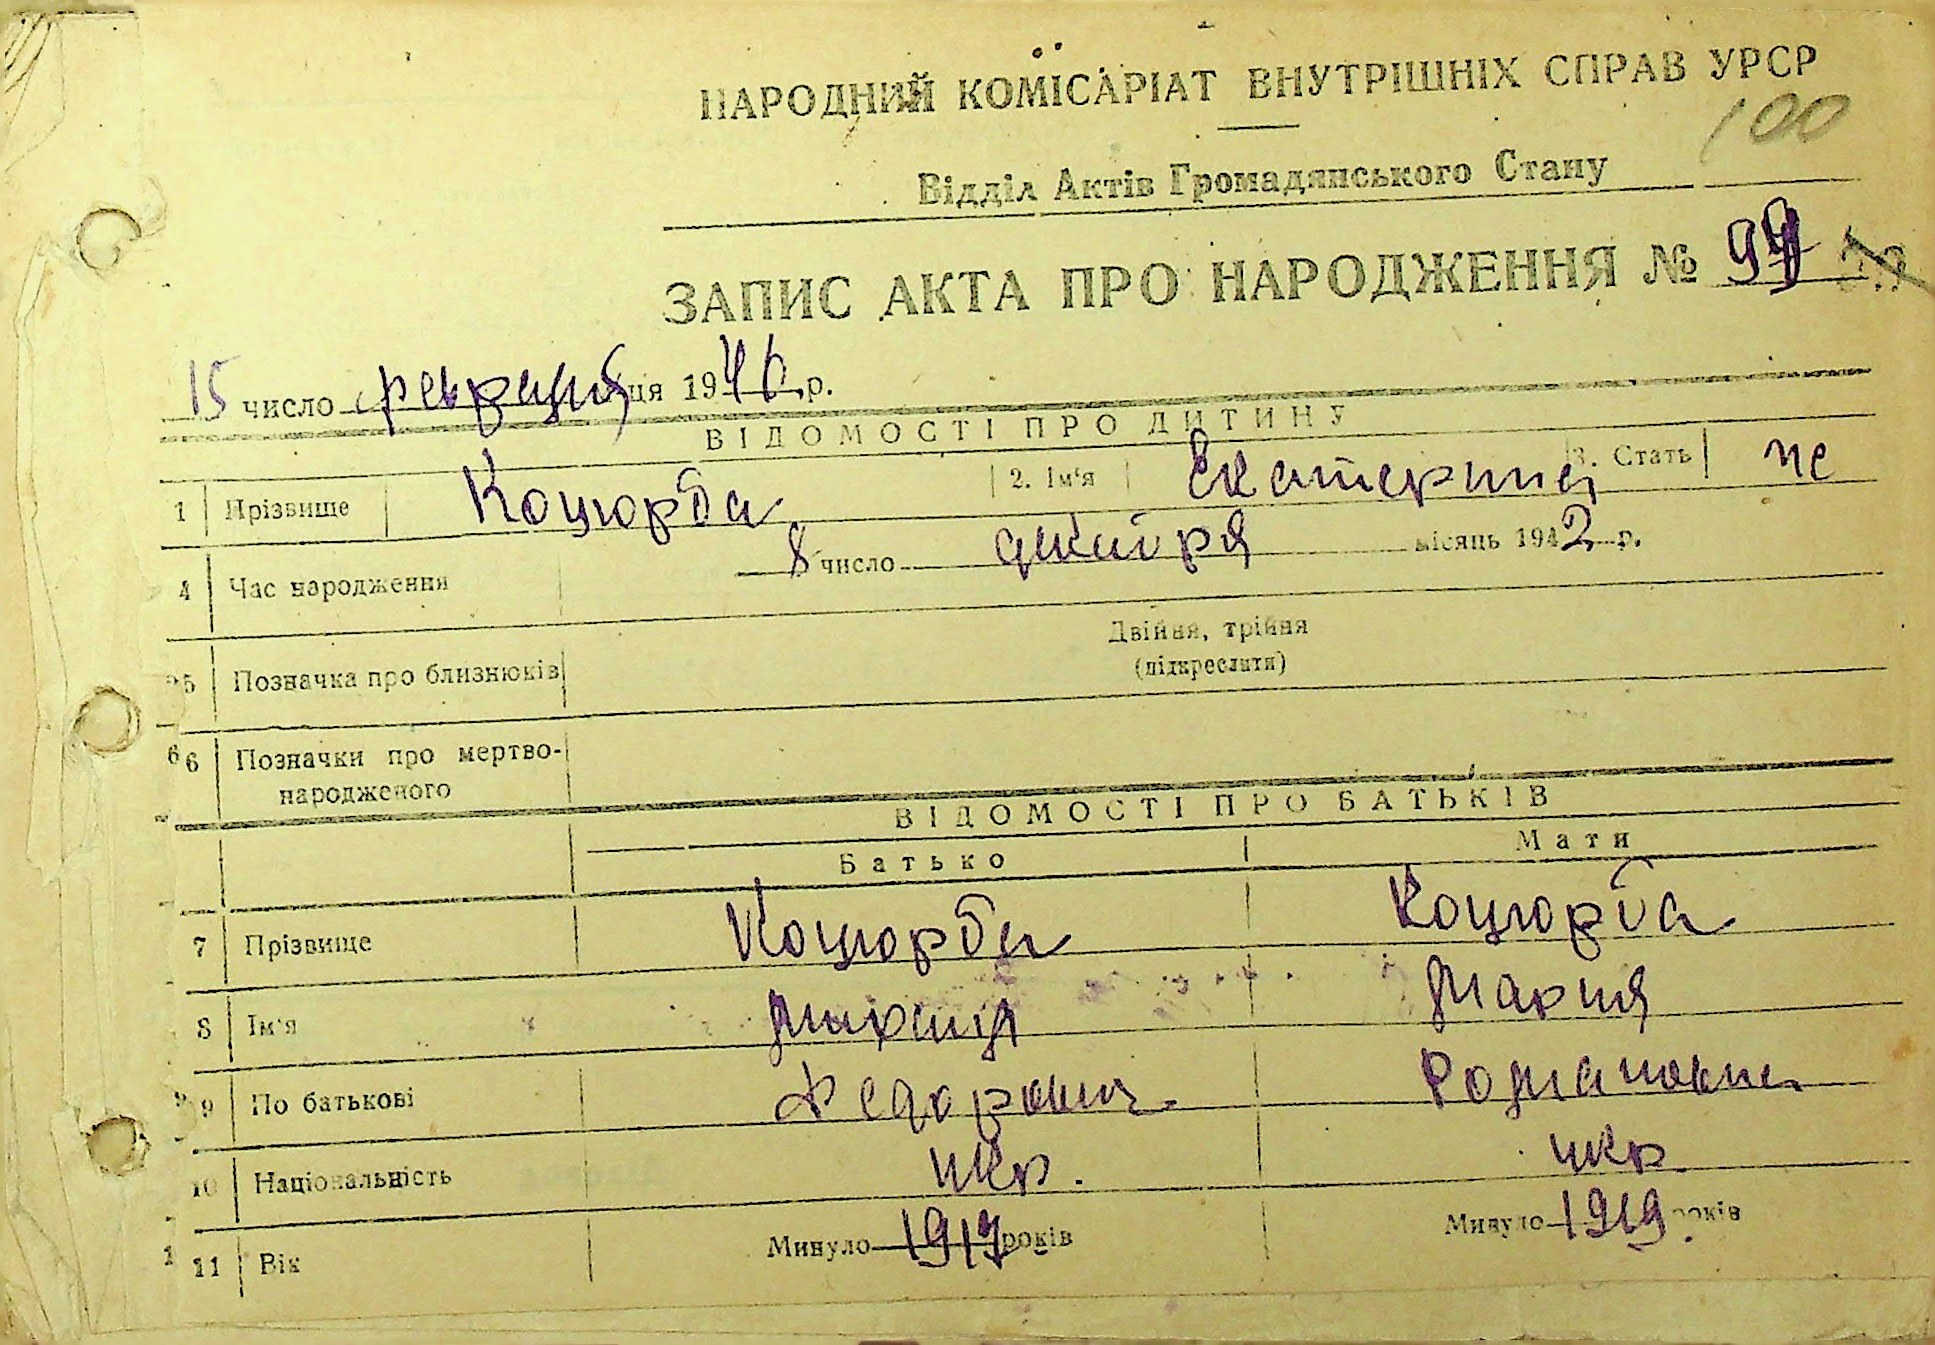 НАРОДНИЙ КОМІСАРІАТ ВНУТРІШНІХ СПРАВ УРСР
100
Відділ Актів Громадянського Стану
ЗАПИС АКТА ПРО НАРОДЖЕННЯ № 99
15 число февраля ця 1946 р.
ВІДОМОСТІ ПРО ДИТИНУ
1 Прізвище Коцюрба 2. Ім'я Екатерина 3. Стать же
4 Час народження 8 число декабря місяць 1942 р.
5 Позначка про близнюків Двійня, трійня
(підкреслити)
6 Позначки про мертво-
народженого
ВІДОМОСТІ ПРО БАТЬКІВ
Батько Мати
7 Прізвище Коцюрба Коцюрба
8 Ім'я Мария
9 По батькові Федорович Романовна
10 Національність укр. укр.
11 Вік Минуло 1917 років Минуло 1919 років